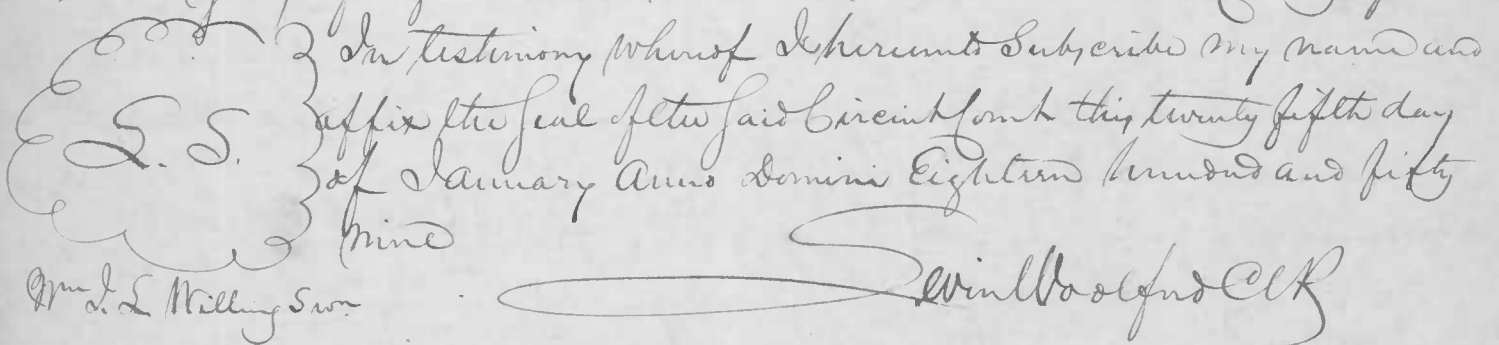 In testimony whereof I hereunto Subscribe my name and
affix the Seal of the Said Circuit Court this twenty fifth day
L. S.
of January Anno Domini Eighteen hundred and fifty
nine
Levin Woolford Clk
Wm J. S. Willing Swn